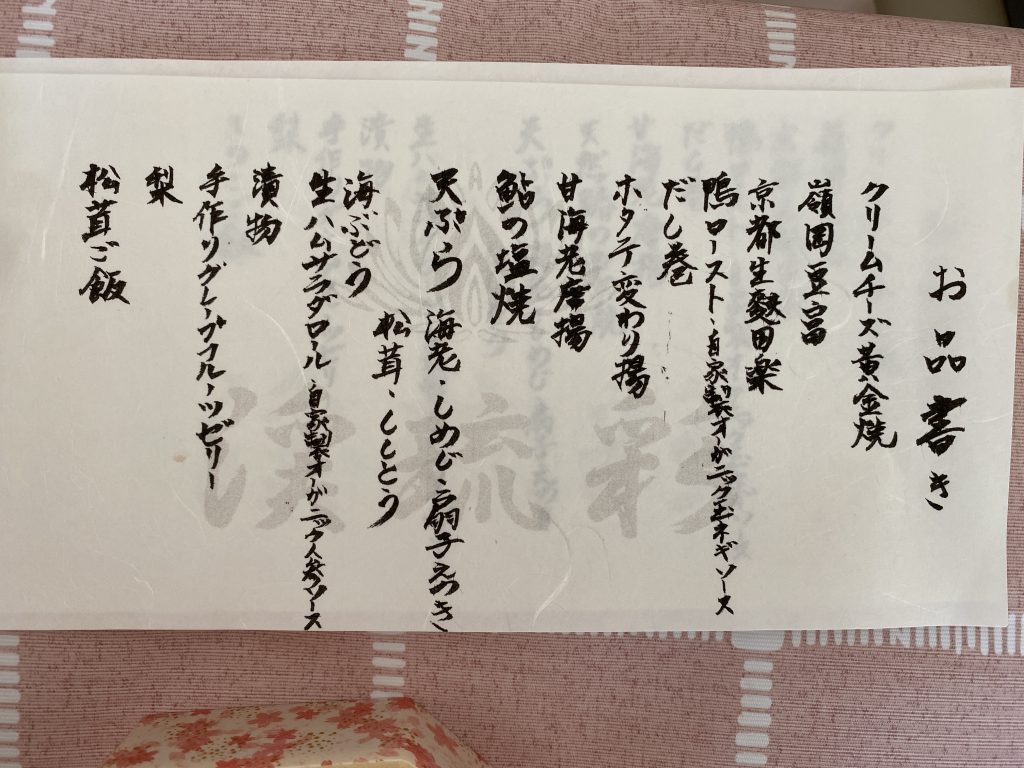 お品書き
クリームチーズ黄金焼
嶺岡豆富
京都生麩田楽
鴨ロースト、自家製オーガニック玉ネギソース
だし巻
ホタテ変わり揚
甘海老唐揚
鮎の塩焼
天ぷら 海老、しめじ、扇子えのき
松茸、ししとう
海ぶどう
生ハムサラダロール、自家製オーガニック人参ソース
漬物
手作リグレープフルーツゼリー
梨
松茸ご飯